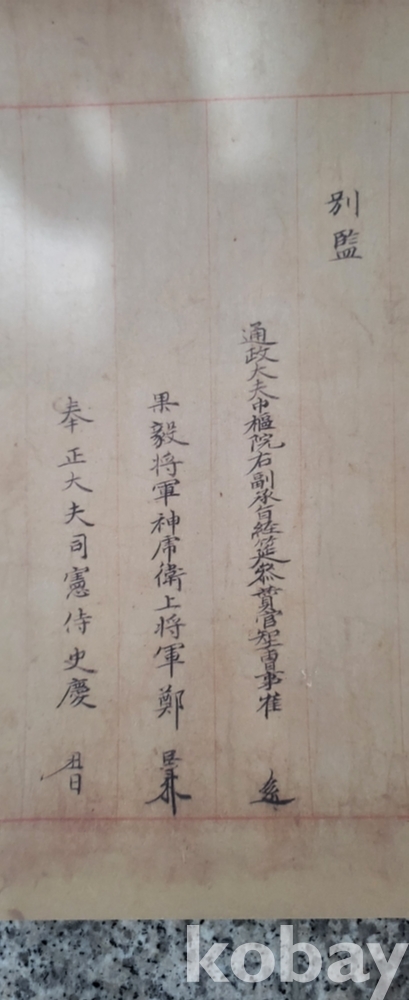 別監
通政大夫中樞院右副承旨經筵叅賛官知吏曹事崔
果毅將軍神虎衛上將軍鄭
奉正大夫司憲侍史慶
kobay